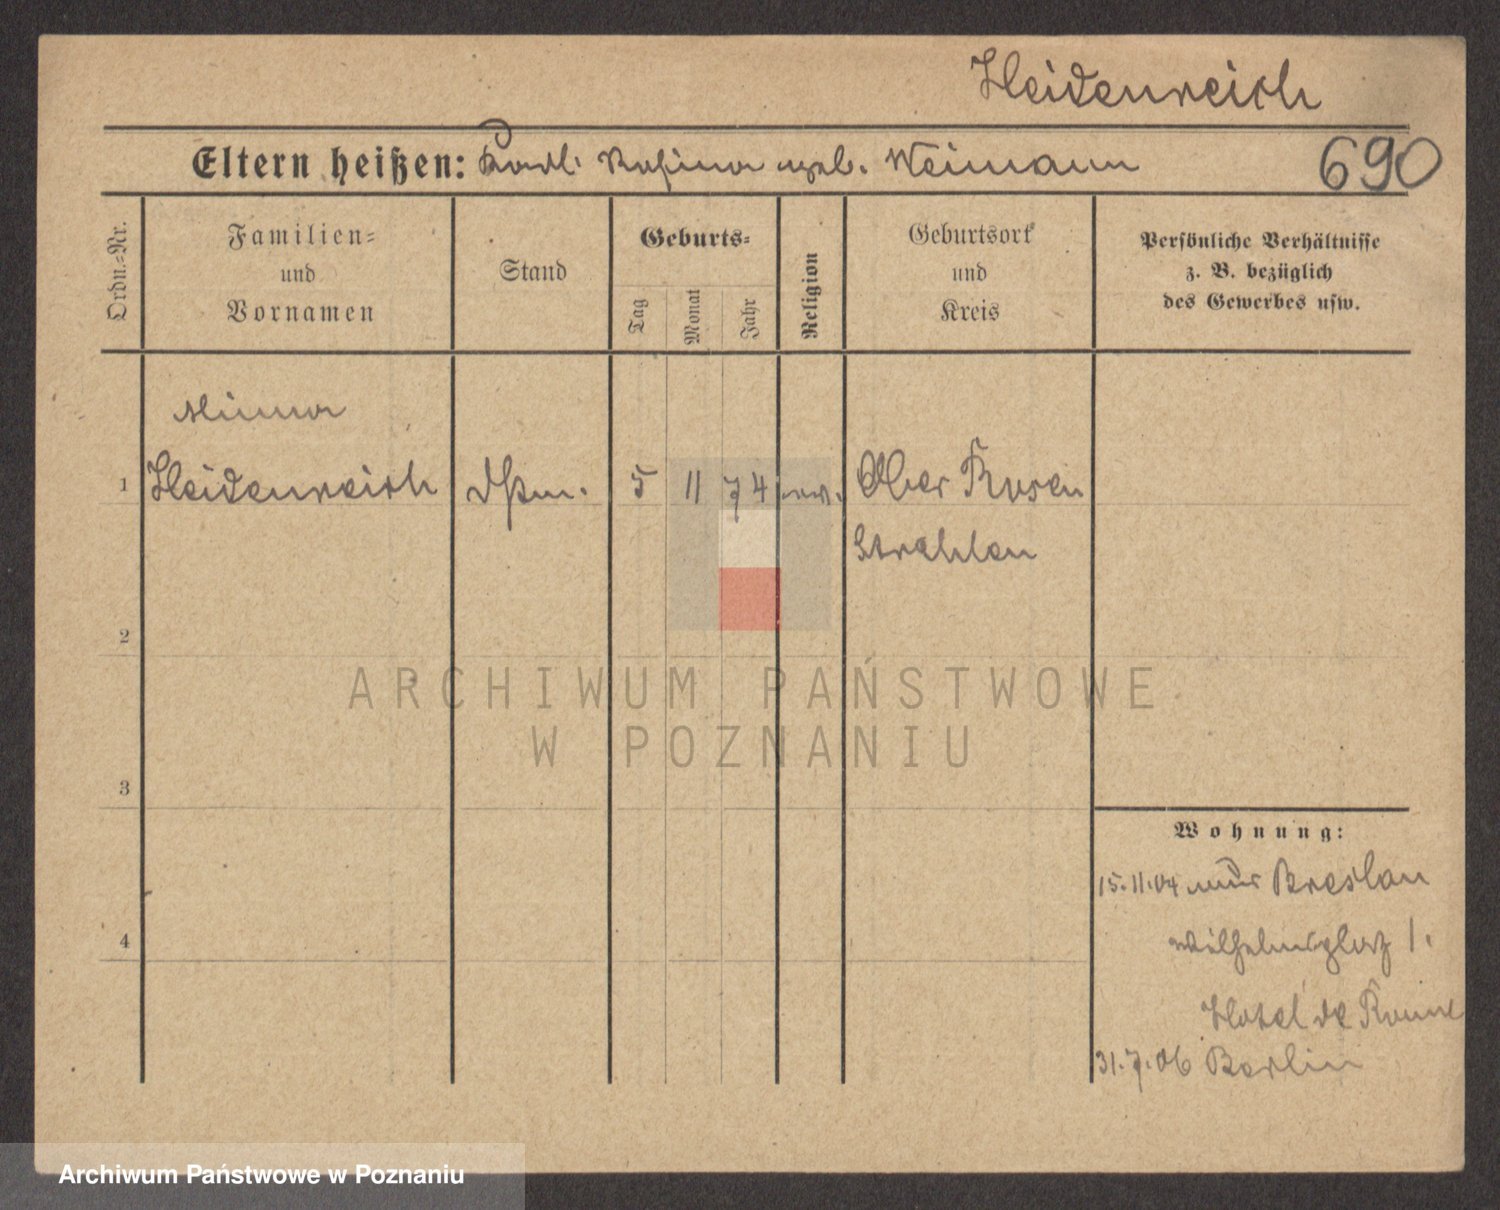 Heidenreich
Eltern heißen: Karl. Rosina geb. Weimann
690
Ordn.=Nr.
Familien=
und
Vornamen
Stand
Geburts=
Tag
Monat
Jahr
Religion
Geburtsort
und
Kreis
Persönliche Verhältnisse
z. B. bezüglich
des Gewerbes usw.
Minna
1 Heidenreich 5 11 74 ev. Ober Rosen
Strehlen
2
ARCHIWUM PAŃSTWOWE
W POZNANIU
3
Wohnung:
15.11.04 Breslau
4
Wilhelmsplatz 1.
Hotel de Rome
31.7.06 Berlin
Archiwum Państwowe w Poznaniu